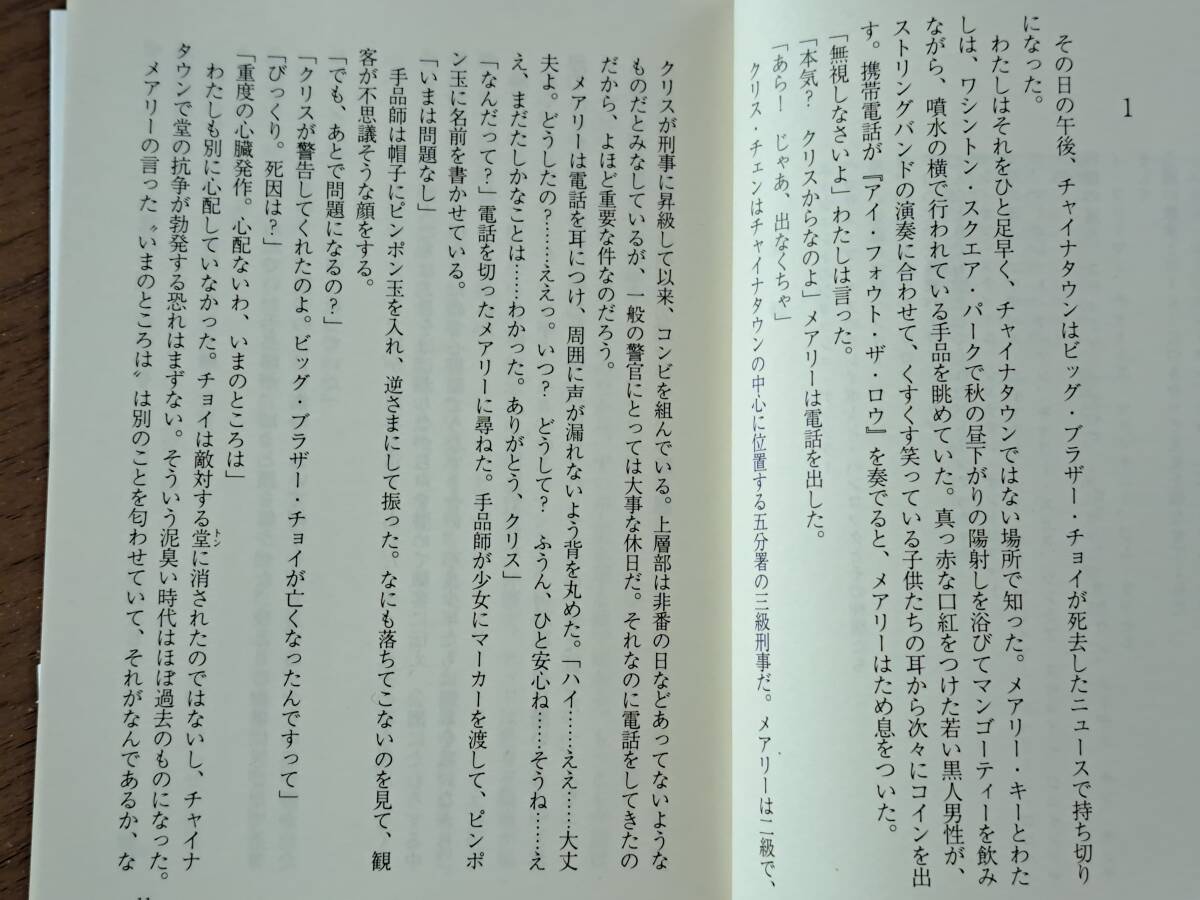 1
その日の午後、チャイナタウンはビッグ・ブラザー・チョイが死去したニュースで持ち切り
になった。
わたしはそれをひと足早く、チャイナタウンではない場所で知った。メアリー・キーとわた
しは、ワシントン・スクエア・パークで秋の昼下がりの陽射しを浴びてマンゴーティーを飲み
ながら、噴水の横で行われている手品を眺めていた。真っ赤な口紅をつけた若い黒人男性が、
ストリングバンドの演奏に合わせて、くすくす笑っている子供たちの耳から次々にコインを出
す。携帯電話が『アイ・フォウト・ザ・ロウ』を奏でると、メアリーはため息をついた。
「無視しなさいよ」わたしは言った。
「本気? クリスからなのよ」メアリーは電話を出した。
「あらー じゃあ、出なくちゃ」
クリス・チェンはチャイナタウンの中心に位置する五分署の三級刑事だ。メアリーは二級で、
クリスが刑事に昇級して以来、コンビを組んでいる。上層部は非番の日などあってないような
ものだとみなしているが、一般の警官にとっては大事な休日だ。それなのに電話をしてきたの
だから、よほど重要な件なのだろう。
メアリーは電話を耳につけ、周囲に声が漏れないよう背を丸めた。「ハイ……ええ……大丈
夫よ。どうしたの?………ええっ。いつ? どうして? ふうん、ひと安心ね……そうね……え
え、まだたしかなことは……わかった。ありがとう、クリス」
「なんだって?」電話を切ったメアリーに尋ねた。手品師が少女にマーカーを渡して、ピンポ
ン玉に名前を書かせている。
「いまは問題なし」
手品師は帽子にピンポン玉を入れ、逆さまにして振った。なにも落ちてこないのを見て、観
客が不思議そうな顔をする。
「でも、あとで問題になるの?」
「クリスが警告してくれたのよ。ビッグ・ブラザー・チョイが亡くなったんですって」
「びっくり。死因は?」
「重度の心臓発作。心配ないわ、いまのところは」
わたしも別に心配していなかった。チョイは敵対する堂トンに消されたのではないし、チャイナ
タウンで堂の抗争が勃発する恐れはまずない。そういう泥臭い時代はほぼ過去のものになった。
メアリーの言った〝いまのところは〟は別のことを匂わせていて、それがなんであるか、な